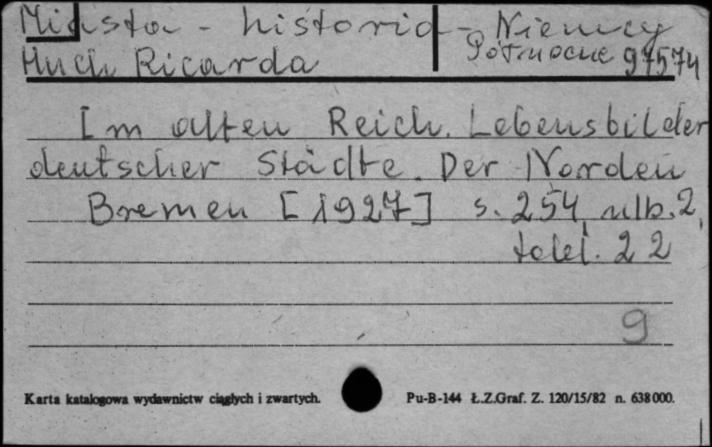 Miasta - historia - Niemcy
Północne 97574
Huch Ricarda
Im alten Reich. Lebensbilder
deutscher Städte. Der Norden
Bremen [1927] s. 254, nlb. 2,
tabl. 22
9
Karta katalogowa wydawnictw ciągłych i zwartych.
Pu-B-144 Ł.Z.Graf. Z. 120/15/82 n. 638000.